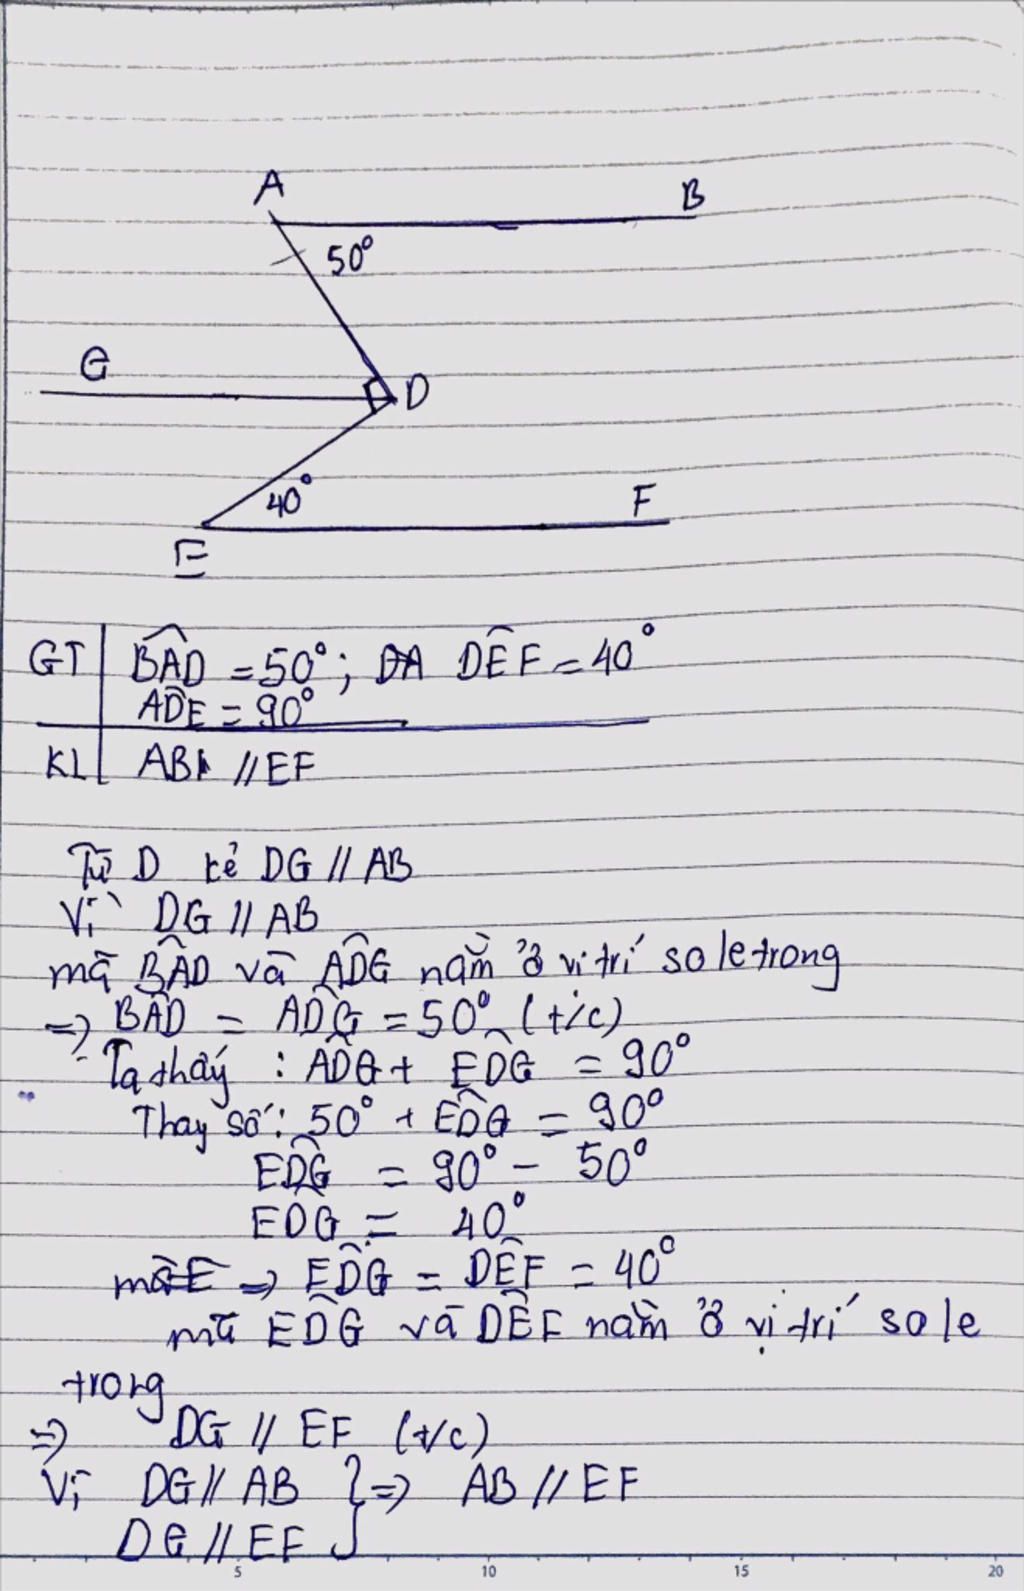 A
B
50°
G
D
40°
F
E
GT | BAD = 50°; DEF = 40°
ADE = 90°
KL | AB // EF
Từ D kẻ DG // AB
Vì DG // AB
mà BAD và ADG nằm ở vị trí so le trong
=> BAD = ADG = 50° (t/c)
Ta thấy : ADG + EDG = 90°
Thay số: 50° + EDG = 90°
EDG = 90° - 50°
EDG = 40°
=> EDG = DEF = 40°
mà EDG và DEF nằm ở vị trí so le
trong
=> DG // EF (t/c)
Vì DG // AB } => AB // EF
DG // EF
5 10 15 20